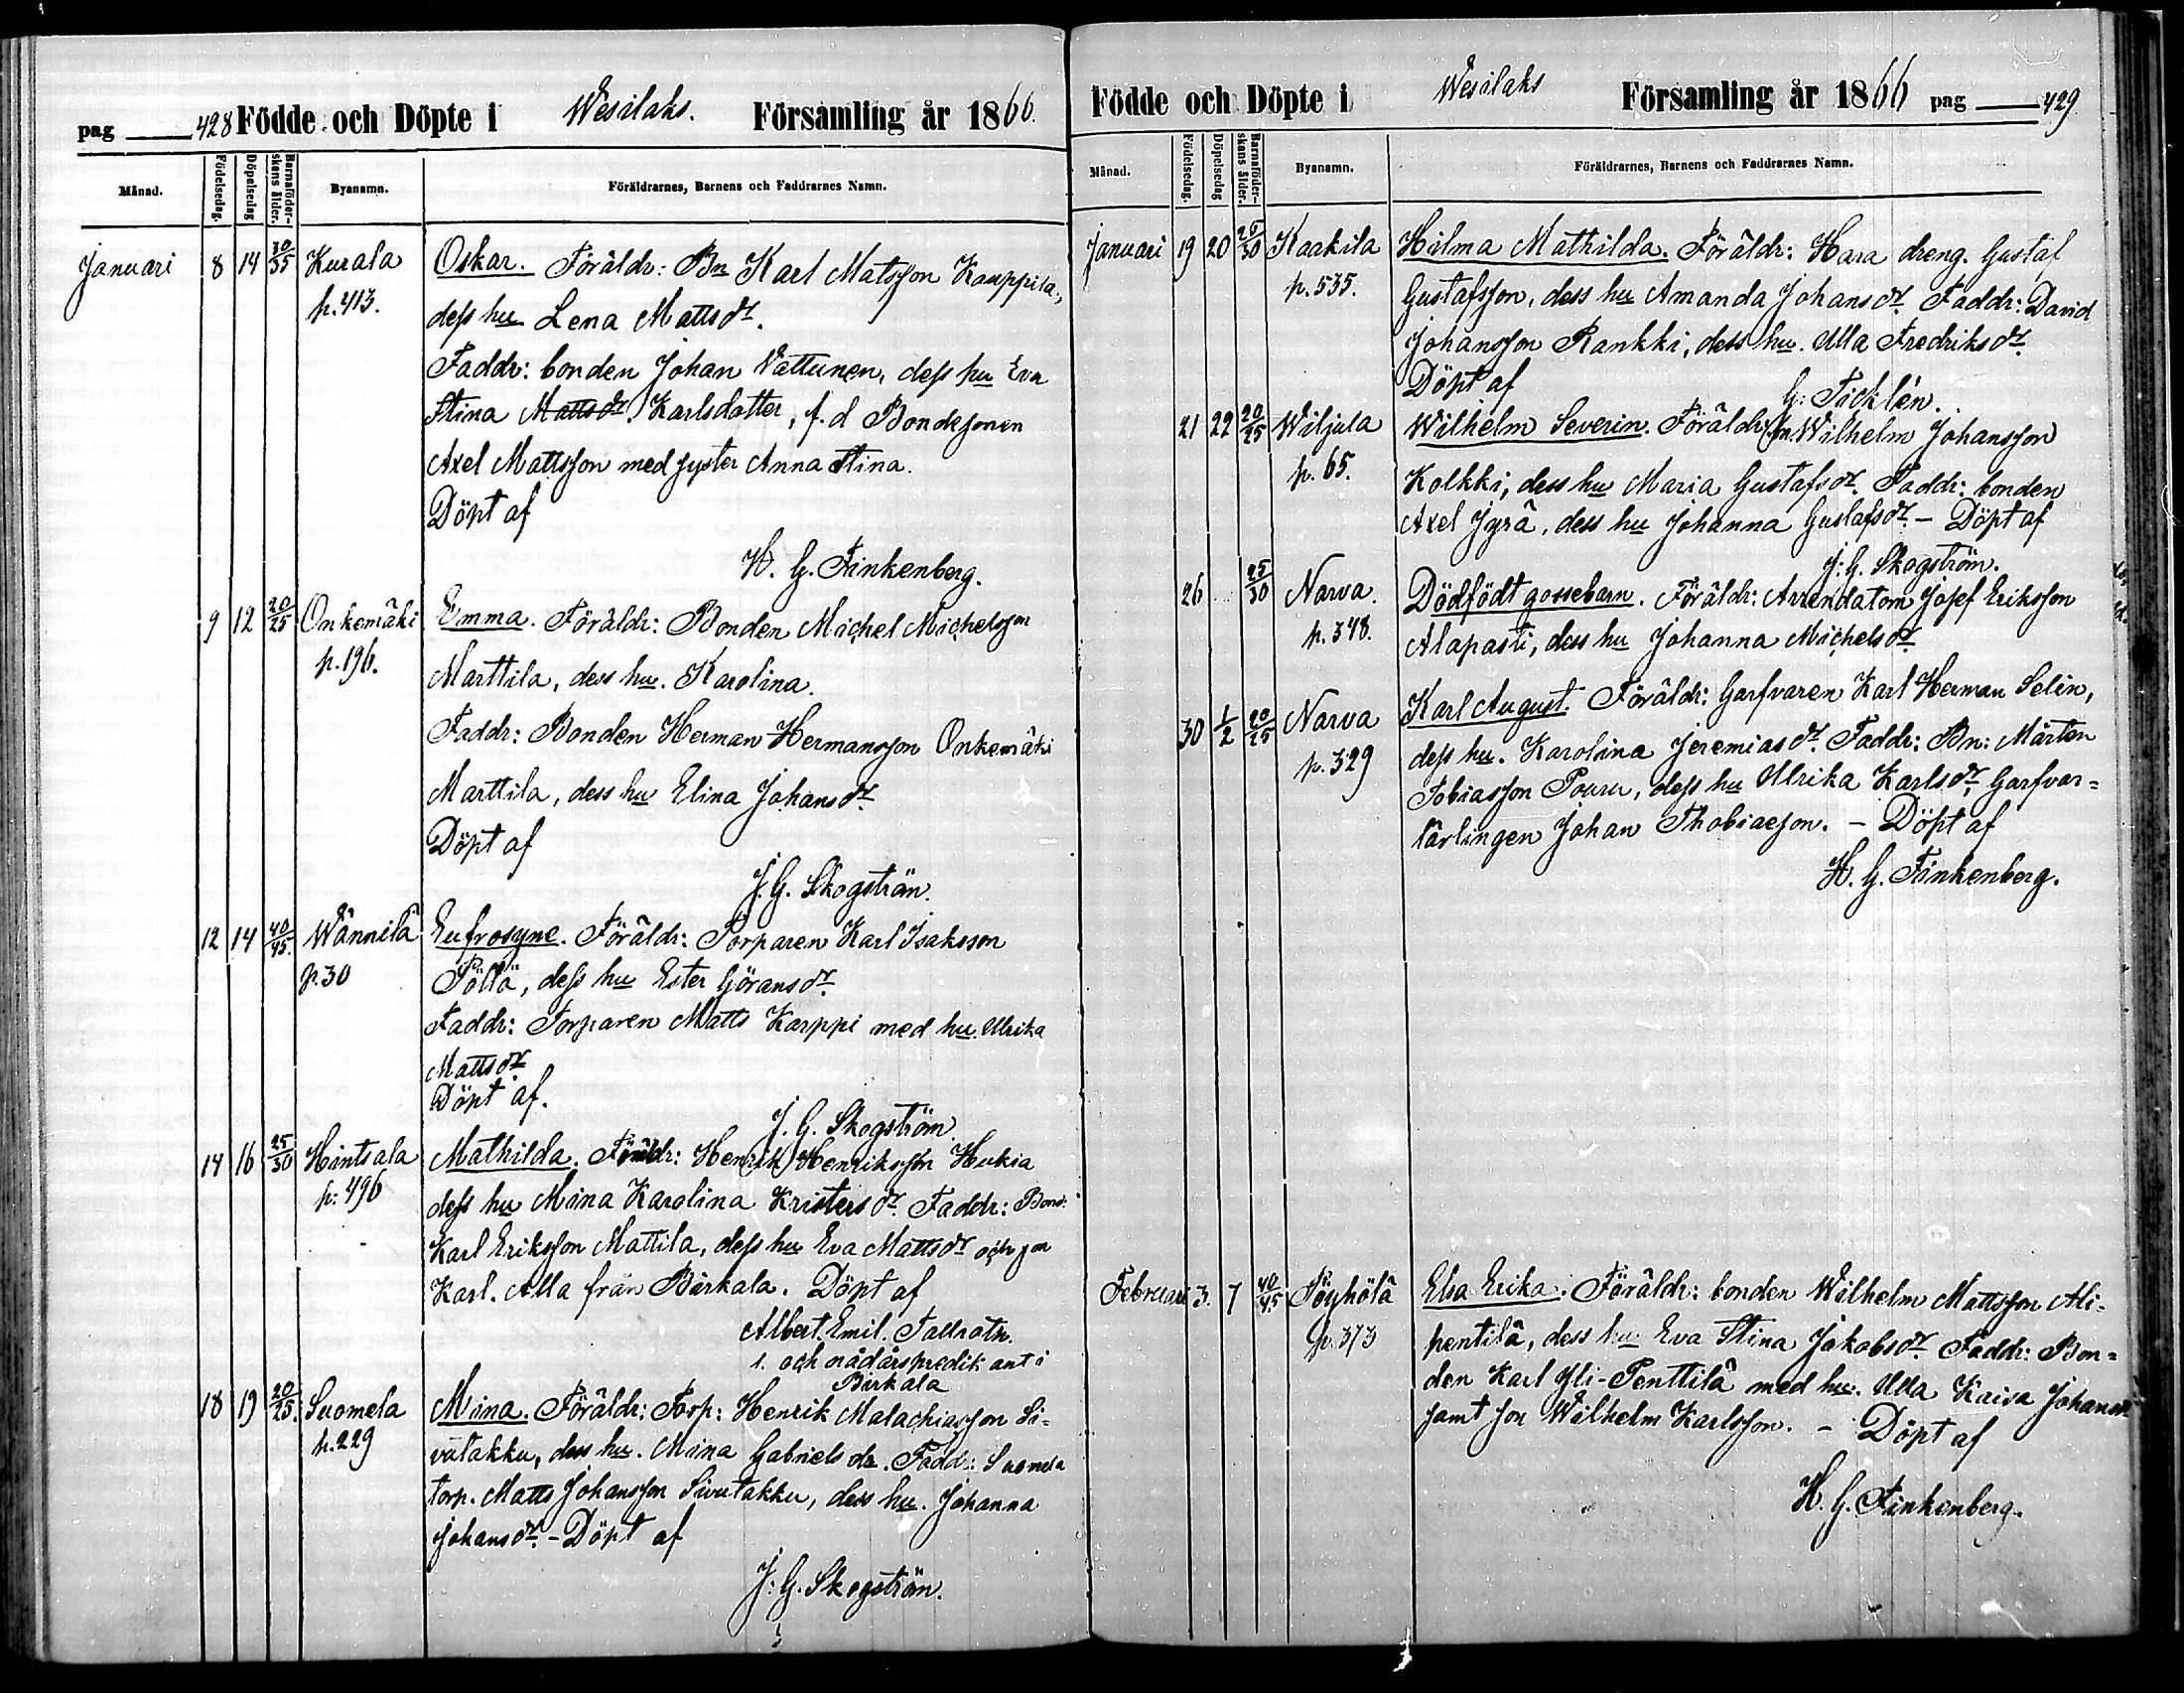 pag 428 Födde och Döpte i Wesilaks. Församling år 1866.
Månad. Födelsedag. Döpelsedag Barnaföderskans ålder. Byanamn. Föräldrarnes, Barnens och Faddrarnes Namn.
Januari 8 14 30/35 Kurala Oskar. Föräldr: Bn Karl Matsson Kauppila,
p. 413. dess hu Lena Mattsdr.
Faddr: bonden Johan Vattunen, dess hu Eva
Stina Mattsdr. Karlsdotter, f. d Bondesonen
Axel Mattsson med syster Anna Stina.
Döpt af
H. G. Finkenberg.
9 12 20/25 Onkemäki Emma. Föräldr: Bonden Michel Michelsson
p. 196. Marttila, dess hu. Karolina.
Faddr: Bonden Herman Hermansson Onkemäki
Marttila, dess hu Elina Johansdr.
Döpt af
J. G. Skogström.
12 14 40/45. Wännilä Eufrosyne. Föräldr: Torparen Karl Isaksson
p. 30 Pöllä, dess hu Ester Göransdr.
Faddr: Torparen Matts Karppi med hu. Ulrika
Mattsdr.
Döpt af.
J. G. Skogström.
14 16 25/30 Hintsala Mathilda. Föräldr: Henrik Henriksson Hukia
p: 496 dess hu Mina Karolina Kristersdr. Faddr: Bond.
Karl Eriksson Mattila, dess hu Eva Mattsdr och son
Karl. Alla från Birkala. Döpt af
Albert Emil. Tallroth.
s. och nådårspredikant i
Birkala
18 19 20/25. Suomela Mina. Föräldr: Torp: Henrik Malachiasson Si-
p. 229 vutakku, dess hu. Mina Gabrielsdr. Faddr: Suomela
torp. Matts Johansson Sivutakku, dess hu. Johanna
Johansdr. - Döpt af
J: G. Skogström.
Födde och Döpte i Wesilaks Församling år 1866 pag 429.
Månad. Födelsedag. Döpelsedag Barnaföderskans ålder. Byanamn. Föräldrarnes, Barnens och Faddrarnes Namn.
Januari 19 20 25/30 Kaakila Hilma Mathilda. Föräldr: Hara dreng. Gustaf
p. 535. Gustafsson, dess hu Amanda Johansdr. Faddr: David
Johansson Rankki, dess hu. Ulla Fredriksdr.
Döpt af
G: Ticklén.
21 22 20/25 Wiljula Wilhelm Severin. Föräldr: Bn Wilhelm Johansson
p. 65. Kolkki, dess hu Maria Gustafsdr. Faddr: bonden
Axel Jyrä, dess hu Johanna Gustafsdr. - Döpt af
J: G. Skogström.
26 25/30 Narva. Dödfödt gossebarn. Föräldr: Arrendatorn Josef Eriksson
p. 348. Alapasti, dess hu Johanna Michelsdr.
30 1/2 20/25 Narva Karl August. Föräldr: Garfvaren Karl Herman Selin,
p. 329 dess hu. Karolina Jeremiasdr. Faddr: Bn: Mårten
Tobiasson Pouru, dess hu Ulrika Karlsdr. Garfvar=
lärlingen Johan Thobiaeson. - Döpt af
H. G. Finkenberg.
Februari 3. 7 40/45 Pöyhölä Elsa Erika. Föräldr: bonden Wilhelm Mattsson Ali-
p. 373 pentilä, dess hu Eva Stina Jakobsdr. Faddr: Bon=
den Karl Yli-Penttilä med hu. Ulla Kaisa Johansdr
samt son Wilhelm Karlsson. - Döpt af
H. G. Finkenberg.